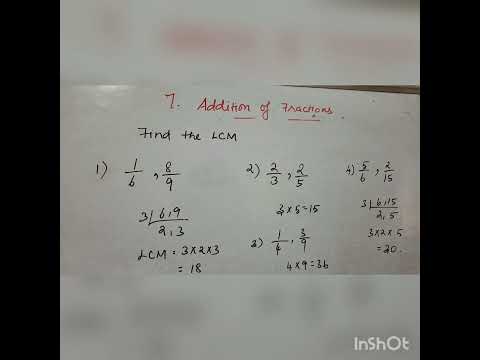 7. Addition of Fractions
Find the LCM
1) 1/6 , 8/9
3|6,9
2,3
LCM = 3×2×3
= 18
2) 2/3 , 2/5
3×5=15
3) 1/4 , 3/9
4×9=36
4) 5/6 , 2/15
3|6,15
2,5
3×2×5
=30.
InShOt